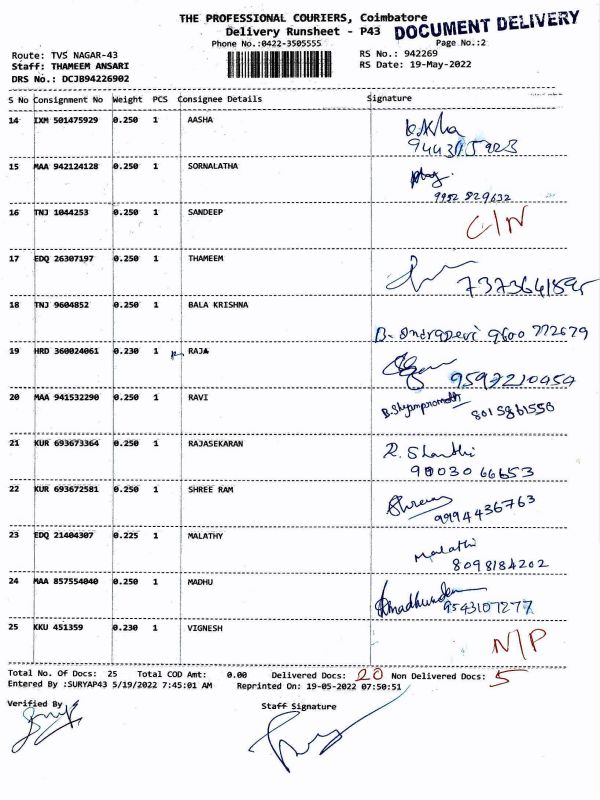 THE PROFESSIONAL COURIERS, Coimbatore
DOCUMENT DELIVERY
Delivery Runsheet - P43
Phone No.:0422-3505555
Page No.:2
Route: TVS NAGAR-43
RS No.: 942269
Staff: THAMEEM ANSARI
RS Date: 19-May-2022
DRS No.: DCJB94226902
S No Consignment No Weight PCS Consignee Details Signature
14 IXM 501475929 0.250 1 AASHA
15 MAA 942124128 0.250 1 SORNALATHA
9952 529632
16 TNJ 1044253 0.250 1 SANDEEP C/N
17 EDQ 26307197 0.250 1 THAMEEM
18 TNJ 9604852 0.250 1 BALA KRISHNA
9600 772679
19 HRD 360024061 0.230 1 RAJA
9597210454
20 MAA 941532290 0.250 1 RAVI
8015861558
21 KUR 693673364 0.250 1 RAJASEKARAN R. Shanthi
90030 66653
22 KUR 693672581 0.250 1 SHREE RAM
9994436763
23 EDQ 21404307 0.225 1 MALATHY Malathi
8098184202
24 MAA 857554040 0.250 1 MADHU
9543107277
25 KKU 451359 0.230 1 VIGNESH N/P
Total No. Of Docs: 25 Total COD Amt: 0.00 Delivered Docs: 20 Non Delivered Docs: 5
Entered By :SURYAP43 5/19/2022 7:45:01 AM Reprinted On: 19-05-2022 07:50:51
Verified By
Staff Signature